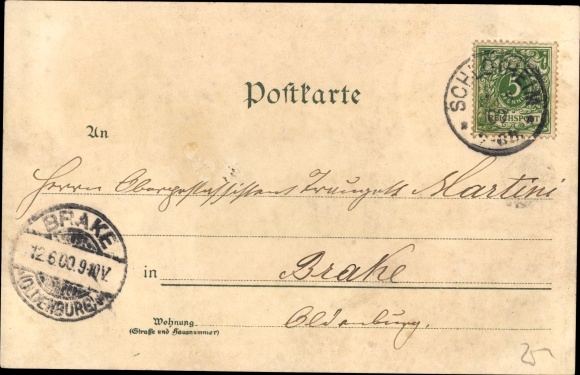 Postkarte
5
PFENNIG
REICHSPOST
SCHLOTHEIM
An
Herrn Oberpostassistent Traugott Martini
BRAKE
12.6.00.9-10V.
(OLDENBURG)
in Brake
Oldenburg.
Wohnung
(Straße und Hausnummer)
25-